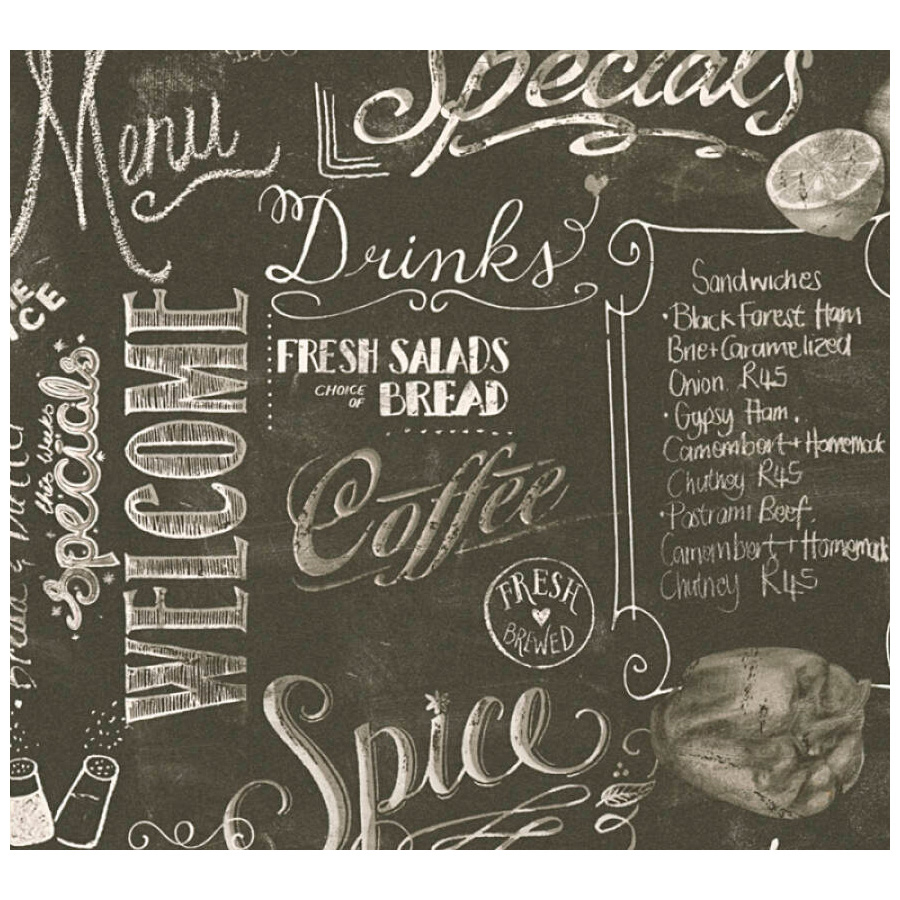 Menu
Specials
Drinks
WELCOME
this weeks
specials
FRESH SALADS
CHOICE OF BREAD
Coffee
FRESH
BREWED
Spice
Sandwiches
• Black Forest Ham
Brie + Caramelized
Onion R45
• Gypsy Ham.
Camembert + Homemade
Chutney R45
• Pastrami Beef.
Camembert + Homemade
Chutney R45